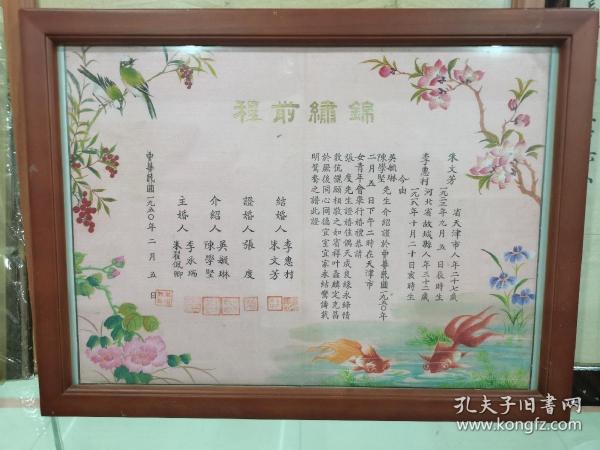 錦繡前程
朱文芳 省天津市人年二十七歲
一九二三年九月五日辰時生
李惠村 河北省故城縣人年三十三歲
一九一八年十月二十日亥時生
今由
吳毓琳
陳學堅 先生介紹謹於中華民國一九五〇年
二月五日下午二時在天津市
女青年會舉行婚禮恭請
張度先生證婚佳偶天成良緣永締情
敦伉儷願相敬之如賓祥叶螽麟定克昌
於厥後同心同德宜室宜家永結鸞儔載
明鴛牒之譜此證
結婚人 李惠村 朱文芳
證婚人 張度
介紹人 吳毓琳 陳學堅
主婚人 李永瑞 朱翟佩卿
中華民國一九五〇年二月五日
孔夫子旧书网
www.kongfz.com